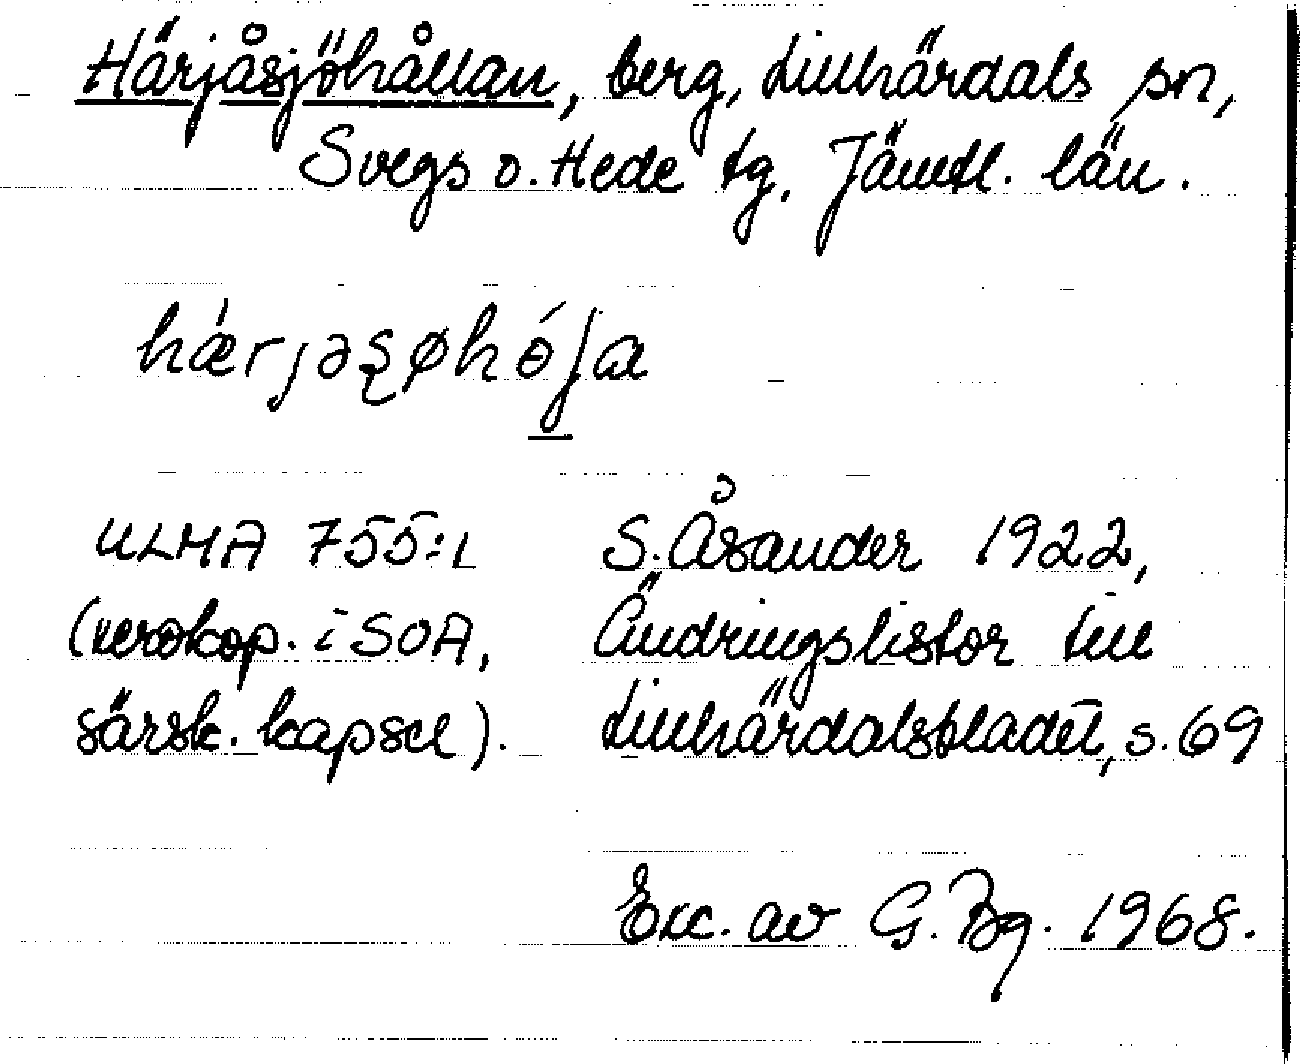 Härjåsjöhållan, berg, Lillhärdals sn,
Svegs o. Hede tg, Jämtl. län.
hǽrjəʂøhóʃa
ULMA 755:1 S. Åsander 1922,
(xerokop. i SOA, Ändringslistor till
särsk. kapsel). Lillhärdalsbladet, s. 69
Exc. av G. Bg. 1968.